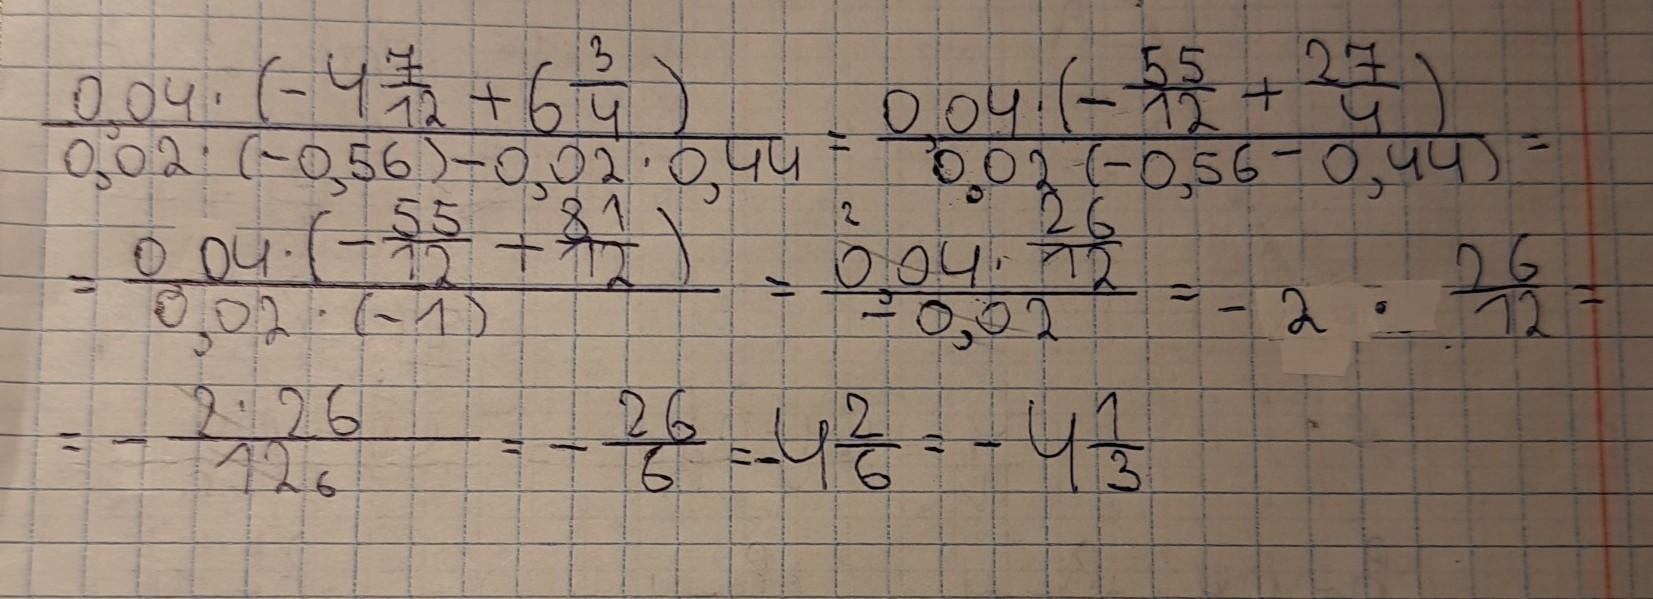 0,04·(-4 7/12 + 6 3/4) / 0,02·(-0,56)-0,02·0,44 = 0,04·(-55/12 + 27/4) / 0,02(-0,56-0,44) =
= 0 04·(-55/12 + 81/12) / 0,02·(-1) = 0,04· 26/12 / -0,02 2 = -2 · 26/12 =
= - 2·26/12 6 = - 26/6 = -4 2/6 = -4 1/3